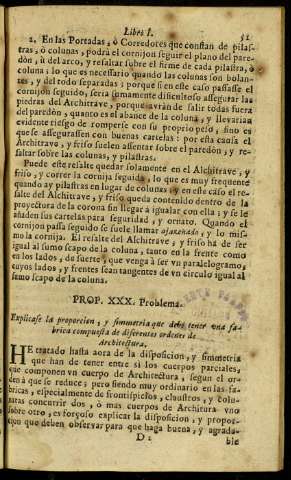 Libro I. 51
2. En las Portadas, ò Corredores que constan de pilas-
tras, ò colunas, podrà el cornijon seguir el plano del pare-
dòn, à del arco, y resaltar sobre el firme de cada pilastra, ò
coluna; lo que es necessario quando las colunas son bolan-
tes, y del todo separadas; porque si en este caso passasse el
cornijon seguido, sera sumamente dificultoso assegurar las
piedras del Architrave, porque avràn de salir todas fuera
del paredòn, quanto es el abance de la coluna, y llevarian
evidente riesgo de romperse con su proprio peso, sino es
que se assegurassen con buenas cartelas: por esta causa el
Architrave, y friso suelen assentar sobre el paredòn, y re-
saltar sobre las colunas, y pilastras.
Puede este resalte quedar solamente en el Alchitrave, y
friso, y correr la cornija seguida, lo que es muy frequente
quando ay pilastras en lugar de colunas: y en este caso el re-
salte del Alchitrave, y friso queda contenido dentro de la
proyectura de la corona sin llegar à igualar con ella; y se le
añaden sus cartelas para seguridad, y ornato. Quando el
cornijon passa seguido se suele llamar y lo mis-
mo la cornija. El resalte del Alchitrave, y friso hà de ser
igual al sumo scapo de la coluna, tanto en la frente como
en los lados, de suerte, que venga à ser vn paralelogramo,
cuyos lados, y frentes sean tangentes de vn circulo igual al
sumo scapo de la coluna.
PROP. XXX. Problema.
Explicase la proporcion, y simmetria que debe tener una fa-
brica compuesta de diferentes ordenes de
Architectura.
HE tratado hasta aora de la disposicion, y simmetria
que han de tener entre si los cuerpos parciales,
que componen vn cuerpo de Architectura, segun el or-
den à que se reduce; pero siendo muy ordinario en las fa-
bricas, especialmente de frontispicios, claustros, y colu-
natas concurrir dos, ò mas cuerpos de Architura vno
sobre otro, es forçoso explicar la disposicion, y propor-
cion que deben observar para que haga buena, y agrada-
D 2 ble